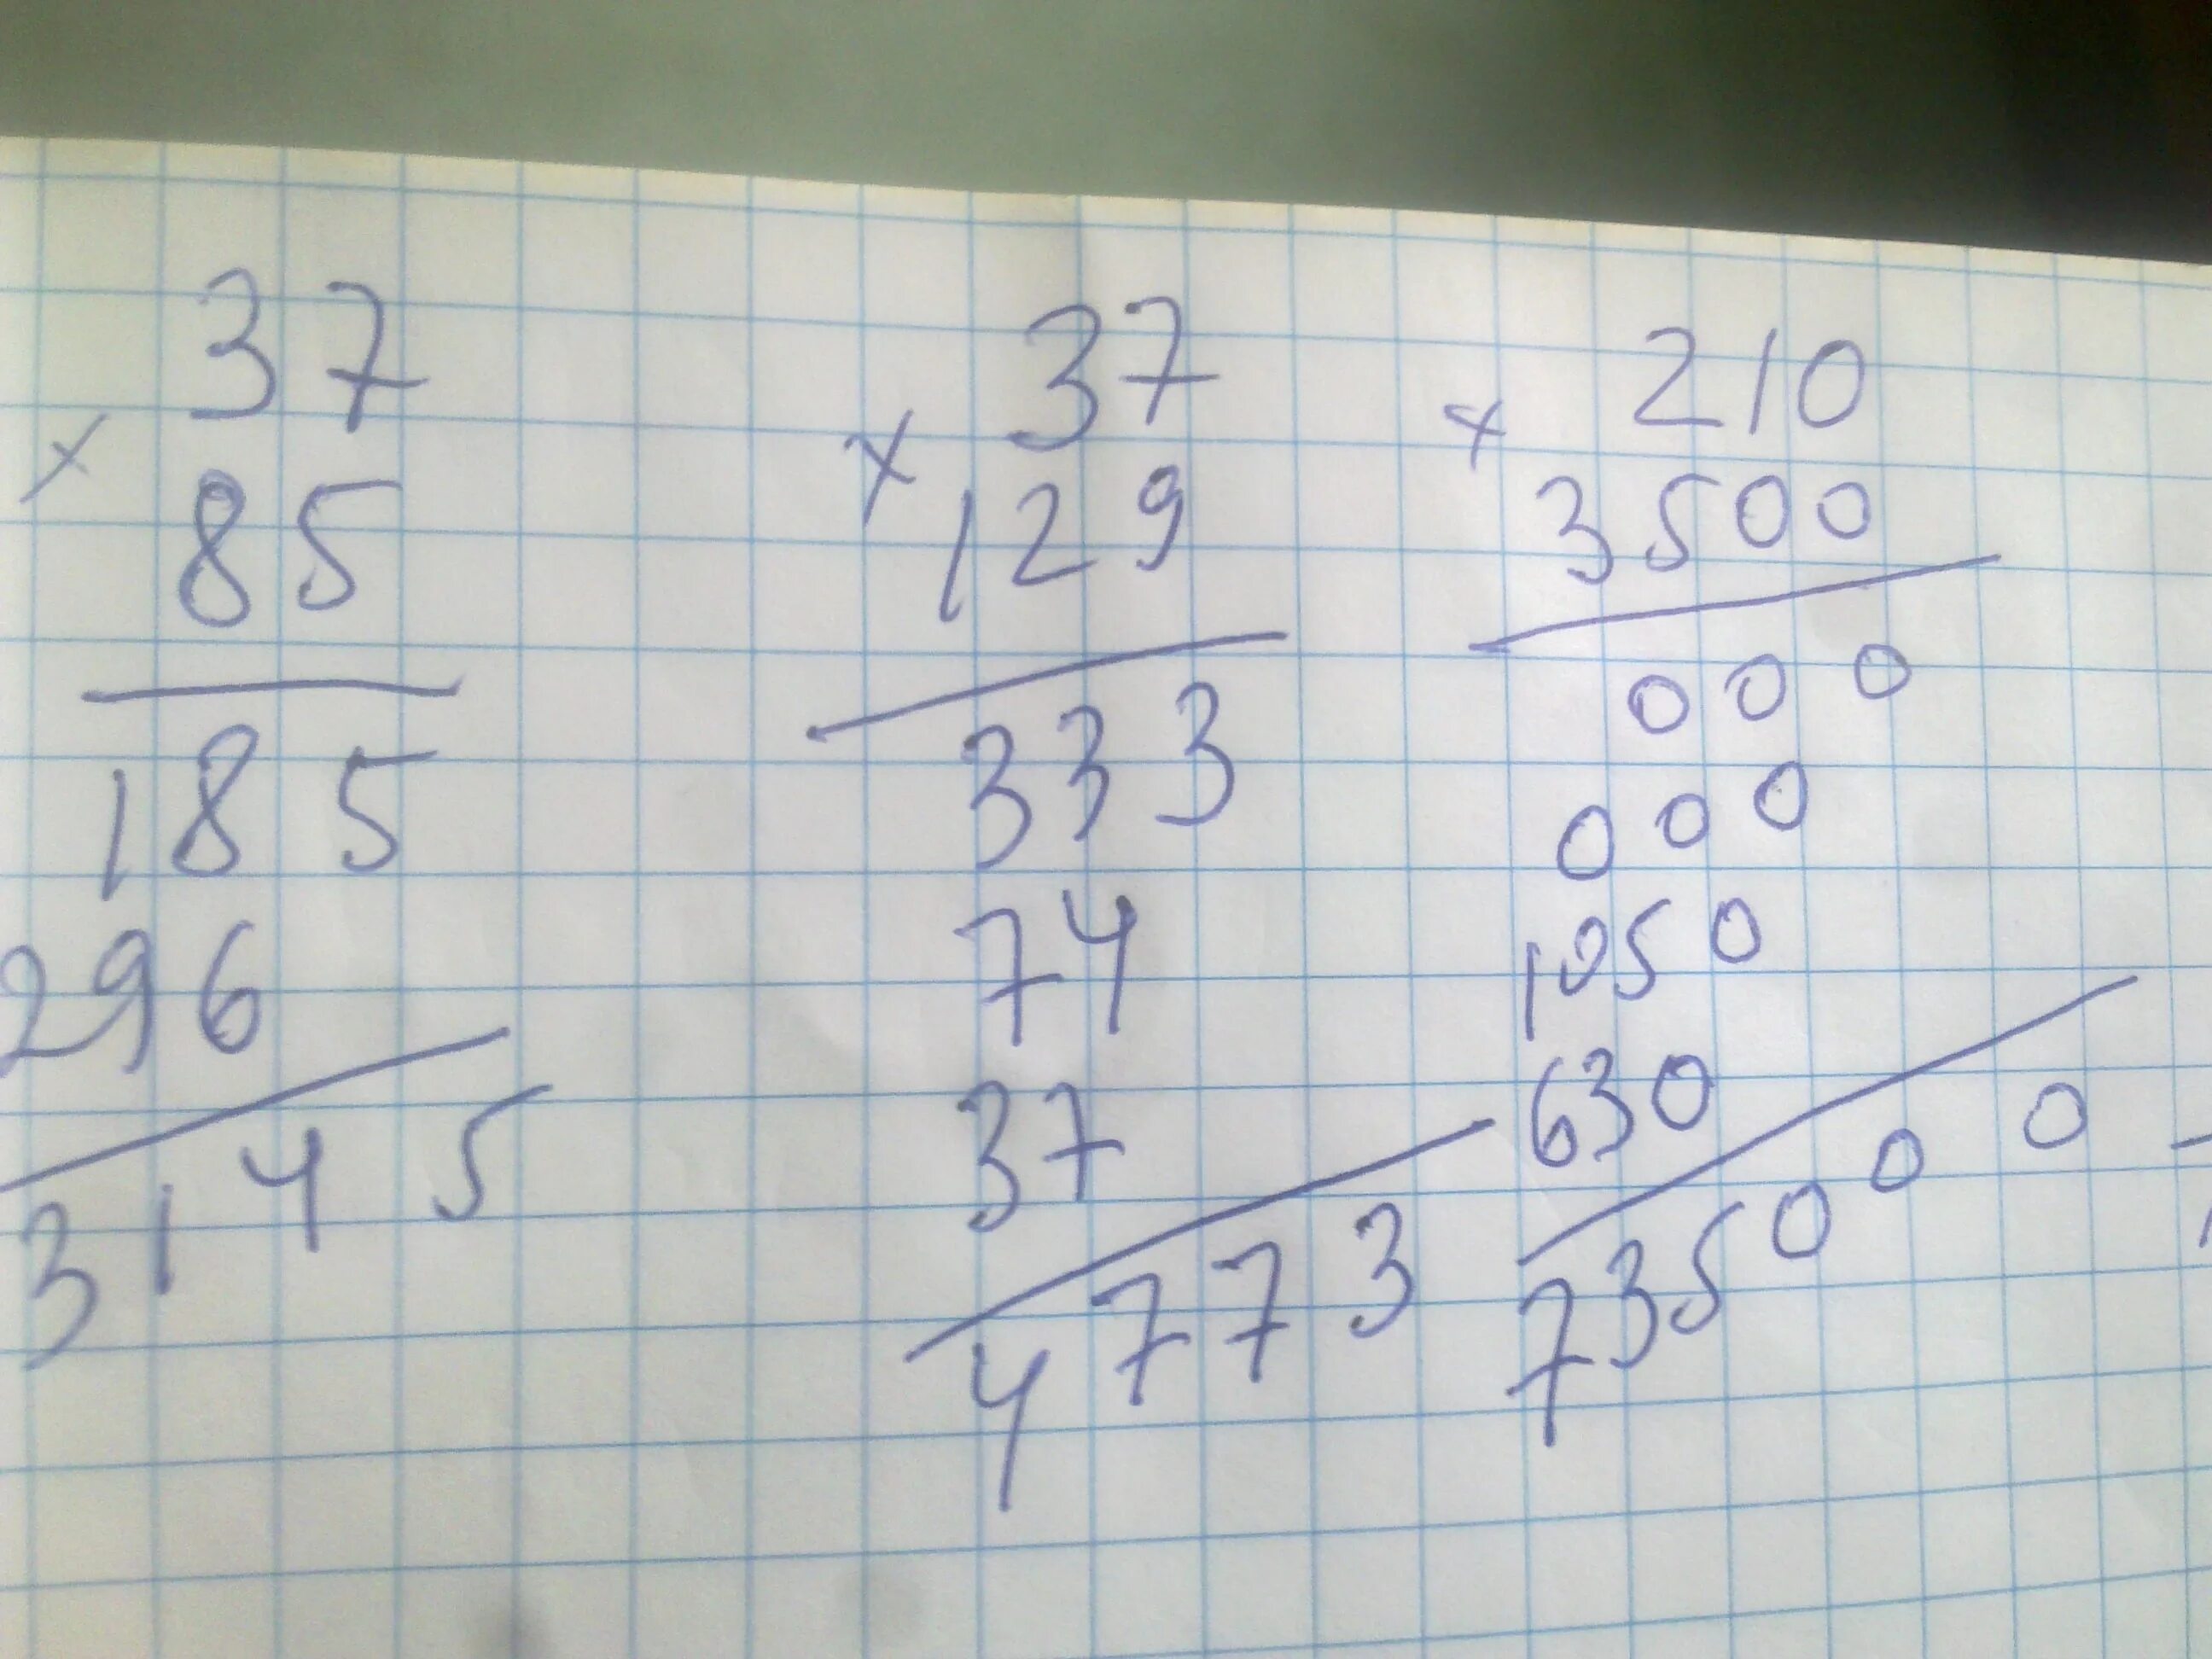 37
×
85
185
296
3145
37
×
129
333
74
37
4773
210
×
3500
000
000
1050
630
735000